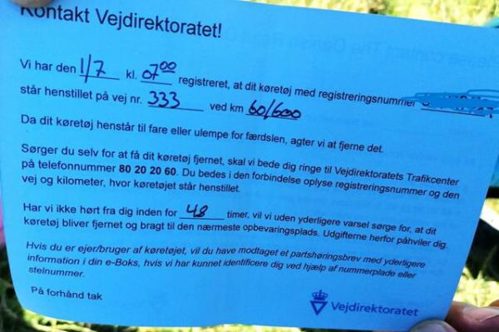 Kontakt Vejdirektoratet!
Vi har den 1/7 kl. 07⁰⁰ registreret, at dit køretøj med registreringsnummer
står henstillet på vej nr. 333 ved km 60/600
Da dit køretøj henstår til fare eller ulempe for færdslen, agter vi at fjerne det.
Sørger du selv for at få dit køretøj fjernet, skal vi bede dig ringe til Vejdirektoratets Trafikcenter
på telefonnummer 80 20 20 60. Du bedes i den forbindelse oplyse registreringsnummer og den
vej og kilometer, hvor køretøjet står henstillet.
Har vi ikke hørt fra dig inden for 48 timer, vil vi uden yderligere varsel sørge for, at dit
køretøj bliver fjernet og bragt til den nærmeste opbevaringsplads. Udgifterne herfor påhviler dig.
Hvis du er ejer/bruger af køretøjet, vil du have modtaget et partshøringsbrev med yderligere
information i din e-Boks, hvis vi har kunnet identificere dig ved hjælp af nummerplade eller
stelnummer.
På forhånd tak
Vejdirektoratet